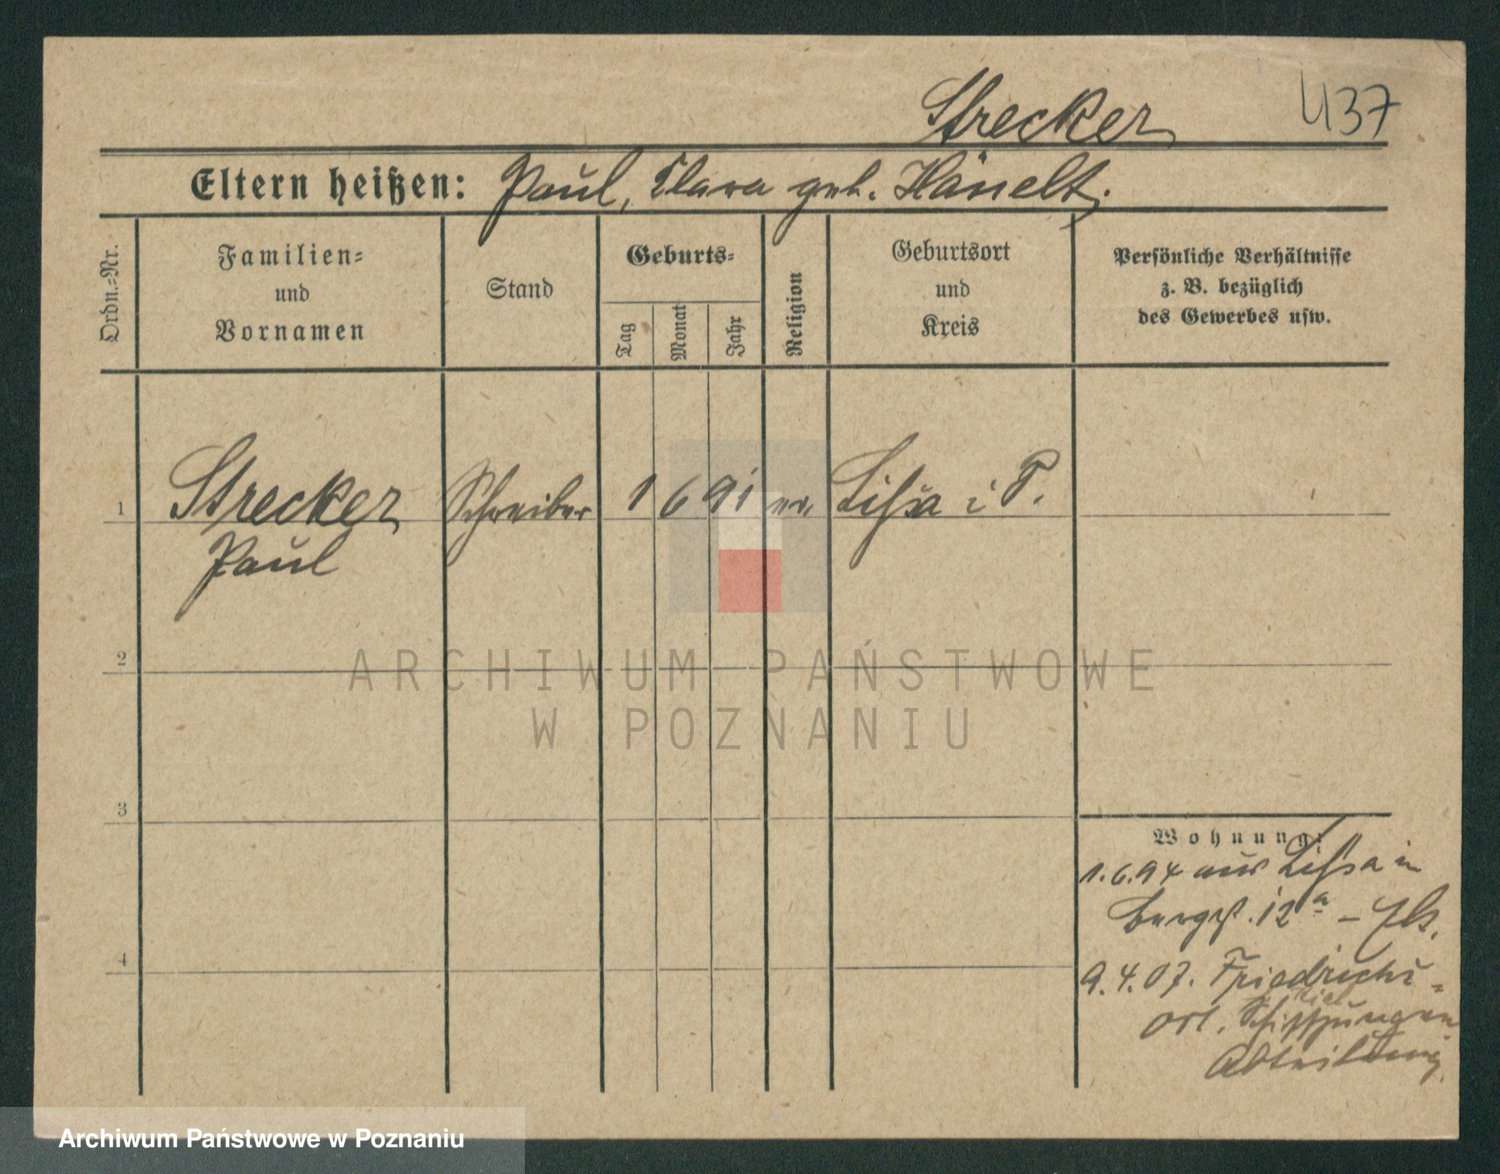 Strecker 437
Eltern heißen: Paul, Clara geb. Hänelt.
Ordn.=Nr.
Familien=
und
Vornamen
Stand
Geburts=
Tag
Monat
Jahr
Religion
Geburtsort
und
Kreis
Persönliche Verhältnisse
z. B. bezüglich
des Gewerbes usw.
1 Strecker Schreiber 1 6 91 ev. Lissa i P.
Paul
2
ARCHIWUM PAŃSTWOWE
W POZNANIU
3
Wohnung:
1.6.94 aus Lissa in
Burgst. 12a –
4
9.4.07. Friedrichs=
ort, Kiel
Schiffsjungen
Abteilung
Archiwum Państwowe w Poznaniu